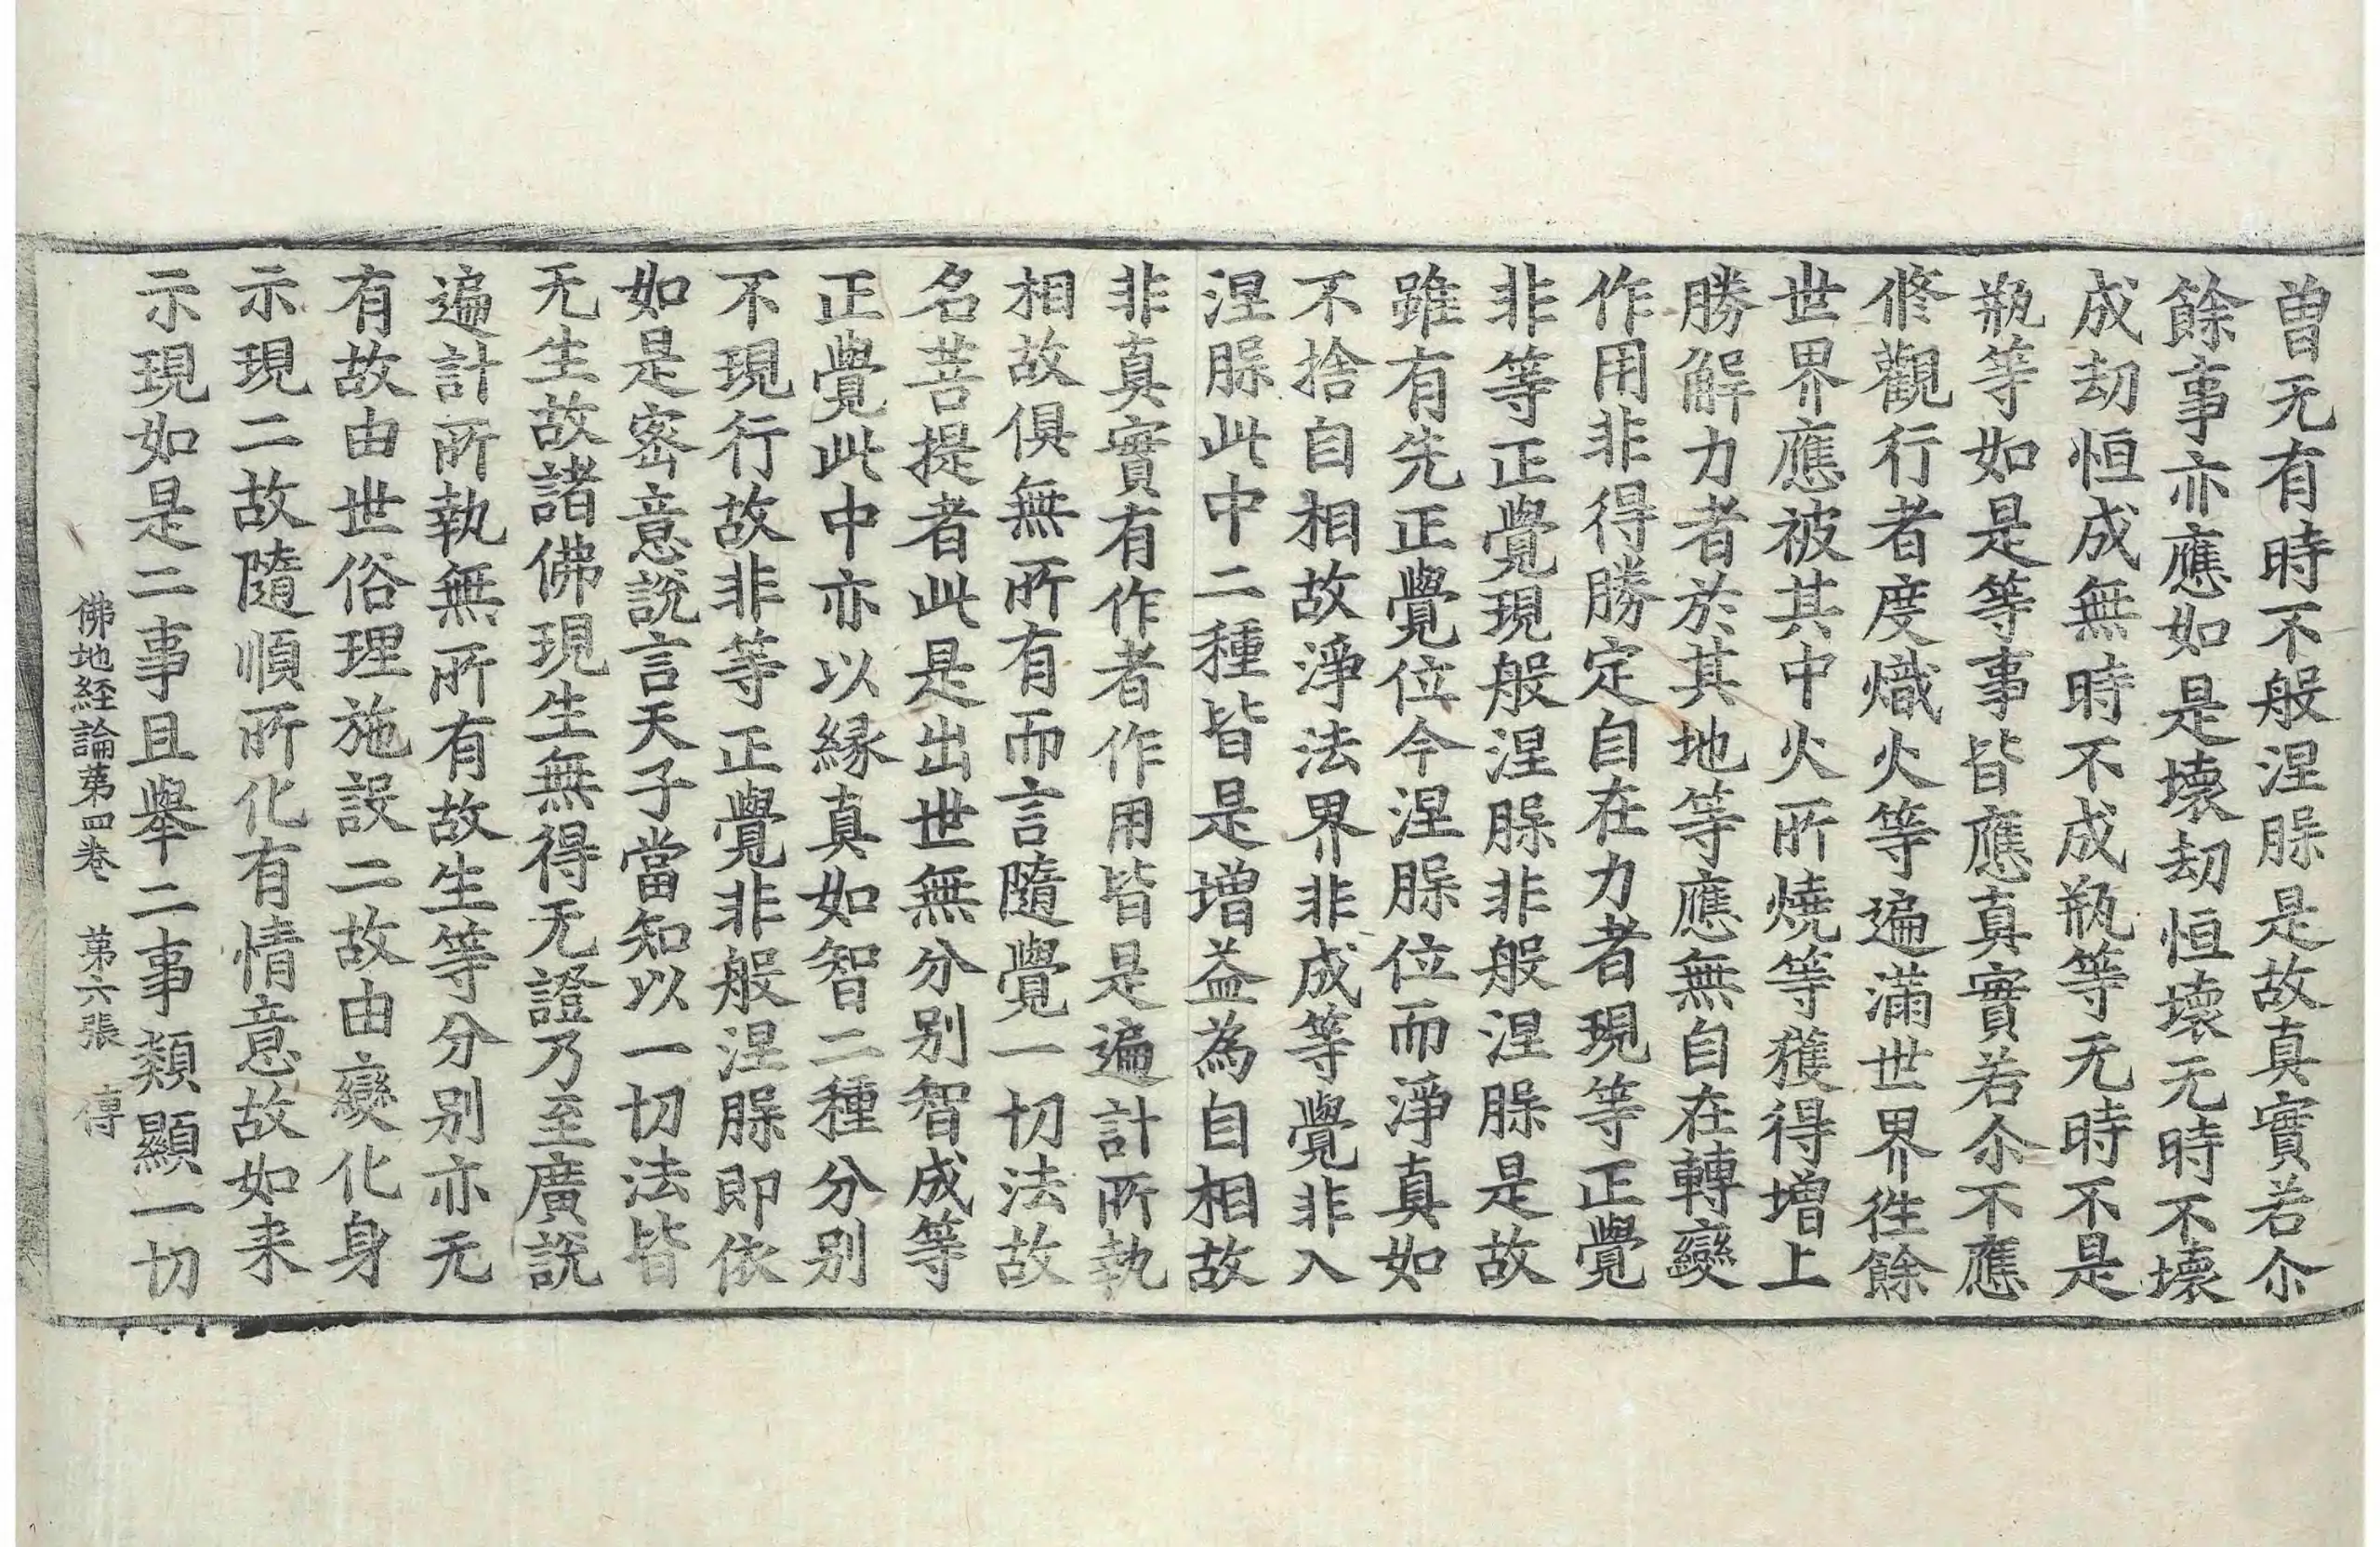 曽无有時不般涅䏶是故真實若尒
餘事亦應如是壞劫恒壞无時不壞
成劫恒成無時不成瓶等无時不是
瓶等如是等事皆應真實若尒不應
修觀行者度熾火等遍滿世界徃餘
世界應被其中火所燒等獲得增上
勝解力者於其地等應無自在轉變
作用非得勝定自在力者現等正覺
非等正覺現般涅䏶非般涅䏶是故
雖有先正覺位今涅䏶位而淨真如
不捨自相故淨法界非成等覺非入
涅䏶此中二種皆是增益為自相故
非真實有作者作用皆是遍計所執
相故俱無所有而言隨覺一切法故
名菩提者此是出世無分別智成等
正覺此中亦以縁真如智二種分別
不現行故非等正覺非般涅䏶即依
如是密意說言天子當知以一切法皆
无生故諸佛現生無得无證乃至廣說
遍計所執無所有故生等分別亦无
有故由世俗理施設二故由變化身
示現二故隨順所化有情意故如来
示現如是二事且舉二事類顯一切
佛地経論第四卷　第六張　傳